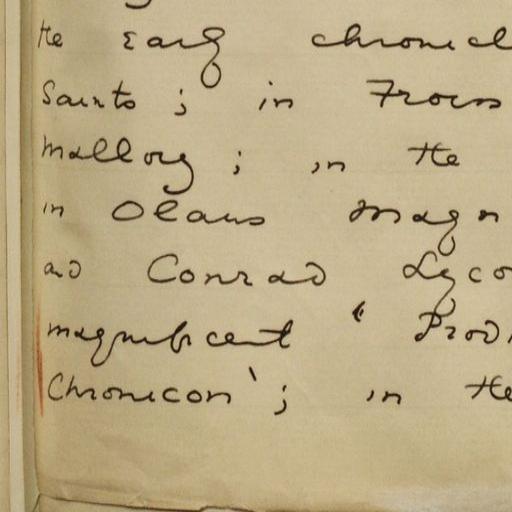 the Early chronicl
Saints ; in Frois
Mallory ; in the
in Olaus Magn
and Conrad Lyco
magnificent ‘ Prodi
Chronicon ’ ; in the